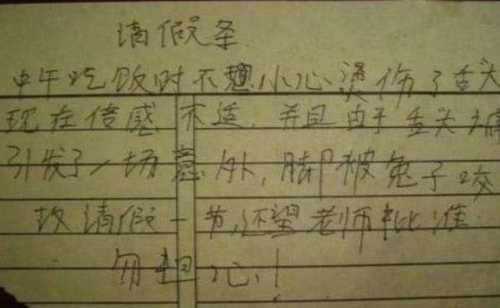 请假条
中午吃饭时不想小心烫伤了舌头
现在倍感不适,并且由于舌头痛
引发了一场意外,脚被兔子咬
故请假一节,还望老师批准
勿担心!